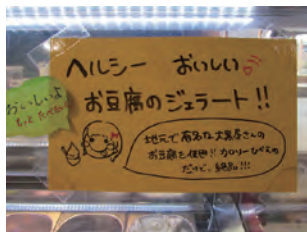 ヘルシー おいしい
お豆腐のジェラート!!
おいしいよ
地元で有名な大黒屋さんの
お豆腐を使用!! カロリーひかえめ
だけど、絶品!!!